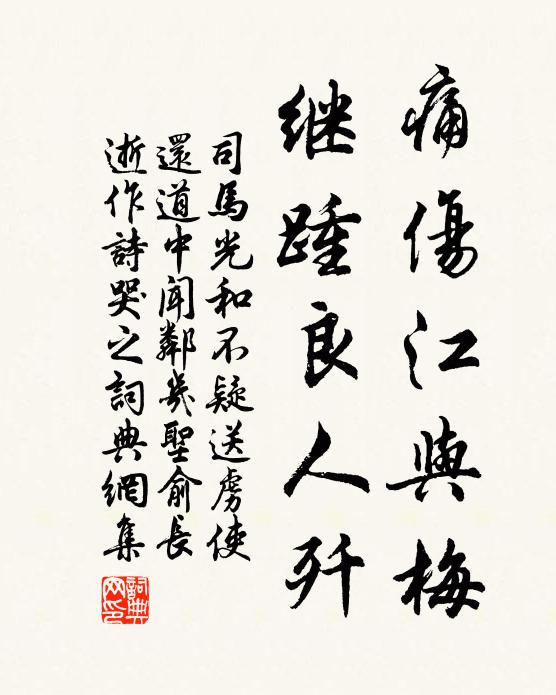 痛傷江與梅
继踵良人歼
司馬光和不疑送虜使
還道中闻鄰幾聖俞長
逝作詩哭之詞典網集
詞典
网印